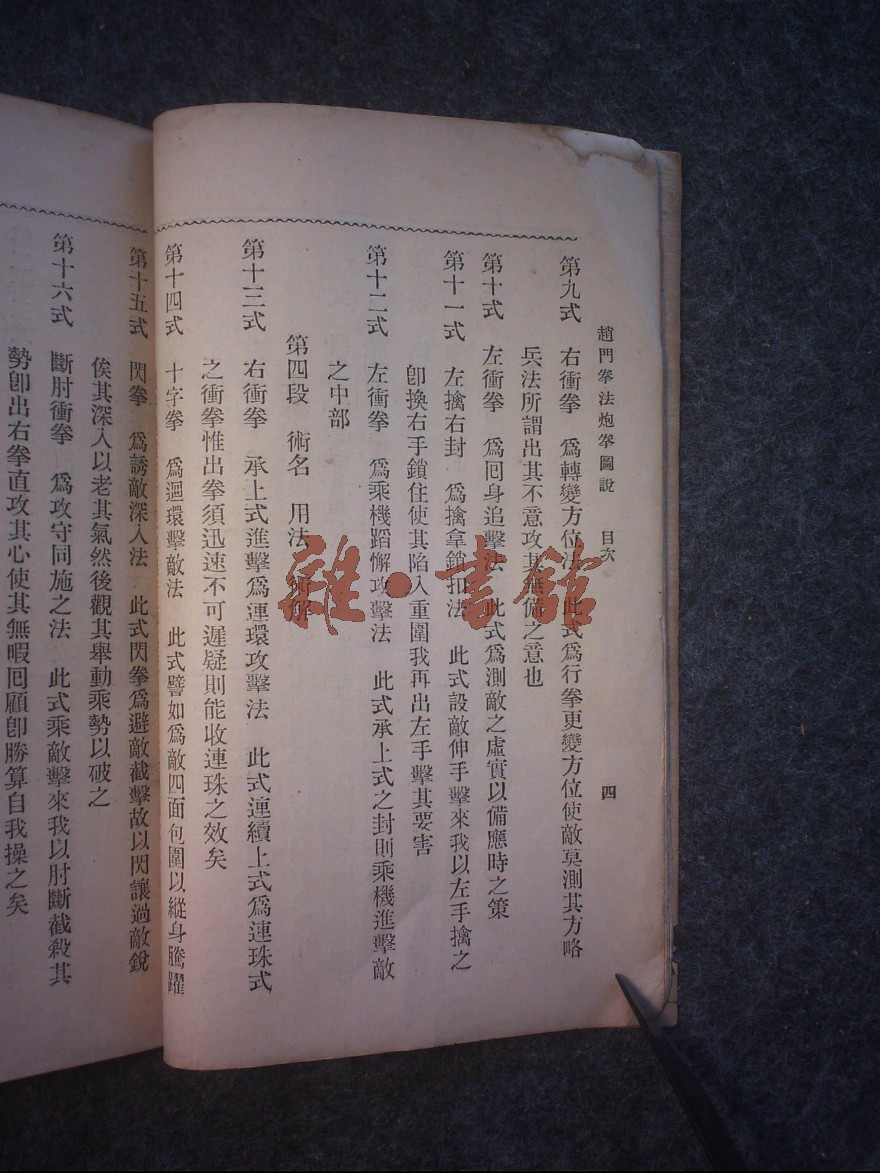 趙門拳法炮拳圖說 目次 四
第九式 右衝拳 爲轉變方位法 此式爲行拳更變方位使敵莫測其方略
兵法所謂出其不意攻其無備之意也
第十式 左衝拳 爲囘身追擊法 此式爲測敵之虛實以備應時之策
第十一式 左擒右封 爲擒拿鎖扣法 此式設敵伸手擊來我以左手擒之
卽換右手鎖住使其陷入重圍我再出左手擊其要害
第十二式 左衝拳 爲乘機蹈懈攻擊法 此式承上式之封則乘機進擊敵
之中部
第四段 術名 用法 術解
第十三式 右衝拳 承上式進擊爲連環攻擊法 此式連續上式爲連珠式
之衝拳惟出拳須迅速不可遲疑則能收連珠之效矣
第十四式 十字拳 爲迴環擊敵法 此式譬如爲敵四面包圍以縱身騰躍
第十五式 閃拳 爲誘敵深入法 此式閃拳爲避敵截擊故以閃讓過敵銳
俟其深入以老其氣然後觀其舉動乘勢以破之
第十六式 斷肘衝拳 爲攻守同施之法 此式乘敵擊來我以肘斷截殺其
勢卽出右拳直攻其心使其無暇囘顧卽勝算自我操之矣
雜·書館